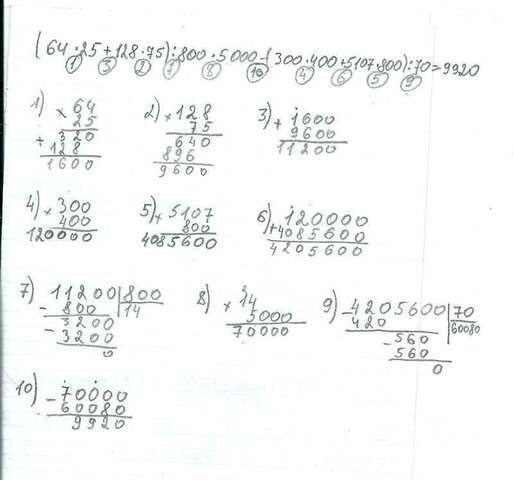 (64·25+128·75):800·5000-(300·400+5107·800):70=9920
1 3 2 7 8 10 4 6 5 9
1) × 64
25
+ 320
128
1600
2) × 128
75
640
896
9600
3) + 1600
9600
11200
4) × 300
400
120000
5) × 5107
800
4085600
6) 120000
+4085600
4205600
7) - 11200 | 800
800 14
- 3200
3200
0
8) × 14
5000
70000
9) - 4205600 | 70
420 60080
- 560
560
0
10) - 70000
60080
9920